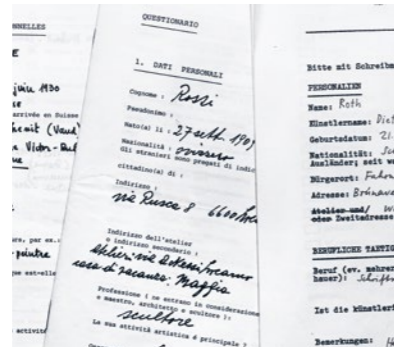 NNELLES
E
juin 1930
arrivée en Suisse
(Vaud)
Victor-
re, par ex.:
peintre
activité
QUESTIONARIO
1. DATI PERSONALI
Cognome : Rossi
Pseudonimo :
Nato(a) il : 27 sett. 1909
Nazionalità : svizzero
Gli stranieri sono pregati di indic
cittadino(a) di :
Indirizzo :
via Rusca 8 6600
Indirizzo dell'atelier
o indirizzo secondario :
Atelier: via
casa di vacanza: Maggia
Professione ( ne entrano in considerazione
o maestro, architetto o scultore ):
scultore
La sua attività artistica è principale ?
Bitte mit Schreibm
PERSONALIEN
Name: Roth
Künstlername: Diet
Geburtsdatum: 21.
Nationalität:
Ausländer; seit w
Bürgerort:
Adresse:
Atelier- und/
oder Zweitadresse
BERUFLICHE TAETIG
Beruf (ev. mehrer
hauer):
Ist die künstleri
Bemerkungen: